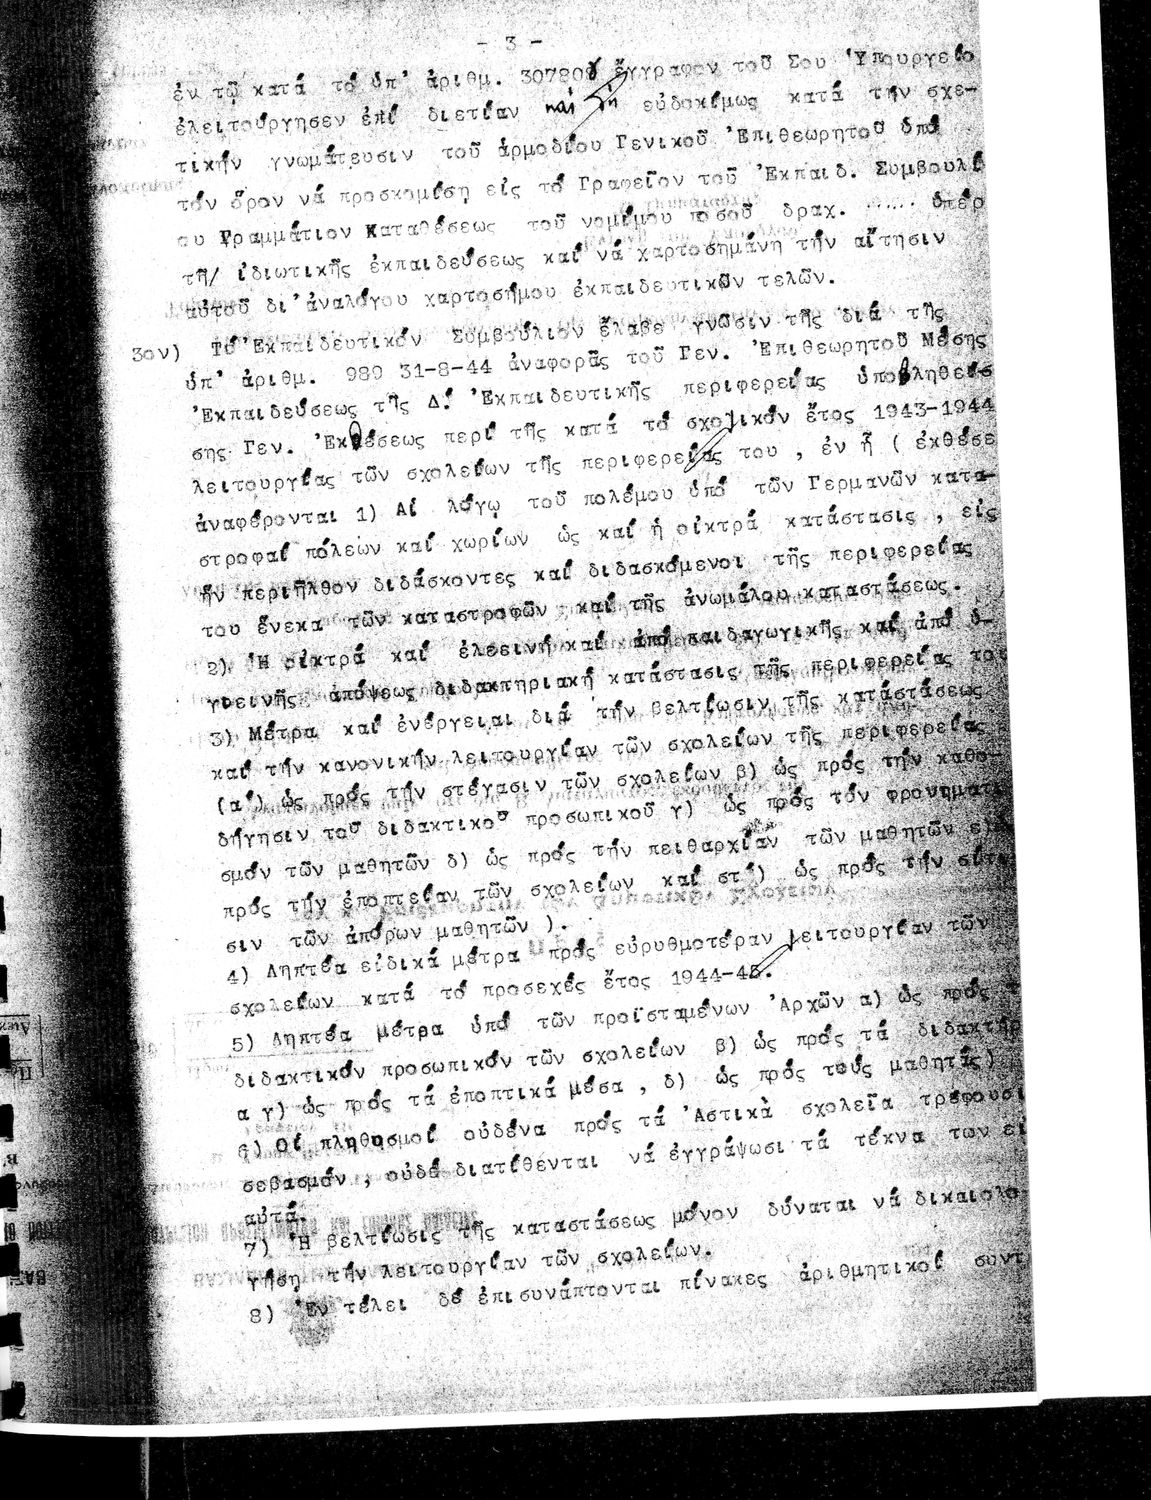 - 3 -
ἐν τῷ κατά τό ὑπ' ἀριθμ. ἔγγραφον τοῦ Σου Ὑπουργείο
ἐλειτούργησεν ἐπί διετίαν καί εὐδοκίμως κατά τήν σχε-
τικήν γνωμάτευσιν τοῦ ἁρμοδίου Γενικοῦ Ἐπιθεωρητοῦ ὑπό
τόν ὅρον νά προσκομίσῃ εἰς τό Γραφεῖον τοῦ Ἐκπαιδ. Συμβουλί
ου Γραμμάτιον Καταθέσεως τοῦ νομίμου ποσοῦ δραχ. ...... ὑπέρ
τῆ/ ἰδιωτικῆς ἐκπαιδεύσεως καί νά χαρτοσημάνῃ τήν αἴτησιν
αὐτοῦ δι' ἀναλόγου χαρτοσήμου ἐκπαιδευτικῶν τελῶν.
3ον) Τό Ἐκπαιδευτικόν Συμβούλιον ἔλαβε γνῶσιν τῆς διά τῆς
ὑπ' ἀριθμ. 989 31-8-44 ἀναφορᾶς τοῦ Γεν. Ἐπιθεωρητοῦ Μέσης
Ἐκπαιδεύσεως τῆς Δ! Ἐκπαιδευτικῆς περιφερείας ὑποβληθεί-
σης Γεν. Ἐκθέσεως περί τῆς κατά τό σχολικόν ἔτος 1943-1944
λειτουργίας τῶν σχολείων τῆς περιφερείας του , ἐν ᾗ ( ἐκθέσε
ἀναφέρονται 1) Αἱ λόγῳ τοῦ πολέμου ὑπό τῶν Γερμανῶν κατα-
στροφαί πόλεων καί χωρίων ὡς καί ἡ οἰκτρά κατάστασις , εἰς
ἥν περιῆλθον διδάσκοντες καί διδασκόμενοι τῆς περιφερείας
του ἕνεκα τῶν καταστροφῶν καί τῆς ἀνωμάλου καταστάσεως.
2) Ἡ οἰκτρά καί ἐλεεινή καί ἀπό παιδαγωγικῆς καί ἀπό ὑ-
γιεινῆς ἀπόψεως διδακτηριακή κατάστασις τῆς περιφερείας του
3) Μέτρα καί ἐνέργειαι διά τήν βελτίωσιν τῆς καταστάσεως
καί τήν κανονικήν λειτουργίαν τῶν σχολείων τῆς περιφερείας
(α') ὡς πρός τήν στέγασιν τῶν σχολείων β) ὡς πρός τήν καθο-
δήγησιν τοῦ διδακτικοῦ προσωπικοῦ γ) ὡς πρός τόν φρονηματι
σμόν τῶν μαθητῶν δ) ὡς πρός τήν πειθαρχίαν τῶν μαθητῶν ε)
πρός τήν ἐποπτείαν τῶν σχολείων καί στ') ὡς πρός τήν σίτι
σιν τῶν ἀπόρων μαθητῶν ).
4) Ληπτέα εἰδικά μέτρα πρός εὐρυθμοτέραν λειτουργίαν τῶν
σχολείων κατά τό προσεχές ἔτος 1944-45.
5) Ληπτέα μέτρα ὑπό τῶν προϊσταμένων Ἀρχῶν α) ὡς πρός τ
διδακτικόν προσωπικόν τῶν σχολείων β) ὡς πρός τά διδακτήρ
α γ) ὡς πρός τά ἐποπτικά μέσα , δ) ὡς πρός τούς μαθητάς)
6) Οἱ πληθυσμοί οὐδένα πρός τά Ἀστικὰ σχολεῖα τρέφουσι
σεβασμόν , οὐδέ διατίθενται νά ἐγγράψωσι τά τέκνα των εἰ
αὐτά
7) Ἡ βελτίωσις τῆς καταστάσεως μόνον δύναται νά δικαιολο-
γήσῃ τήν λειτουργίαν τῶν σχολείων.
8) Ἐν τέλει δέ ἐπισυνάπτονται πίνακες ἀριθμητικοί συντ